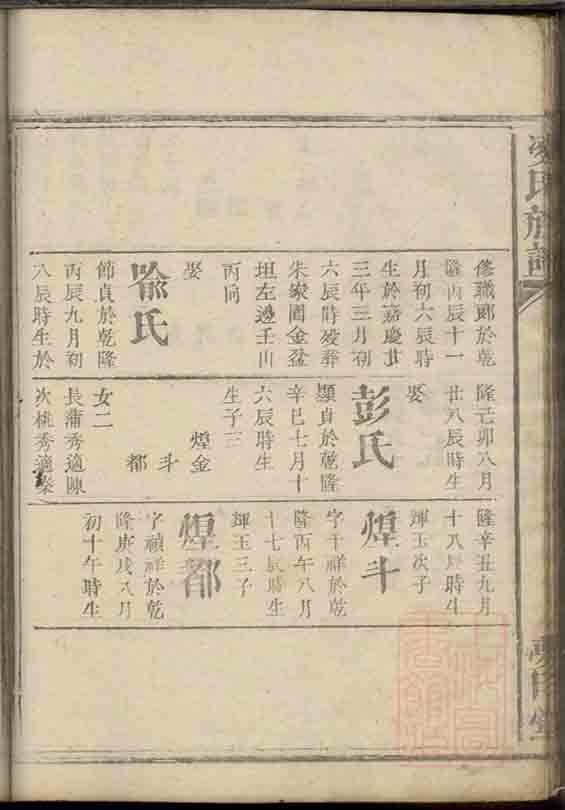 氏族譜
修職郎於乾
隆丙辰十一
月初六辰時
生於嘉慶廿
三年三月初
六辰時歿葬
朱家園金盆
坦左邊壬山
丙向
娶
喻氏
節貞於乾隆
丙辰九月初
八辰時生於
隆己卯八月
廿八辰時生
娶
彭氏
顯貞於乾隆
辛巳七月十
六辰時生
生子三
煌金
斗
都
女二
長蒲秀適陳
次桃秀適秦
隆辛丑九月
十八辰時生
煇玉次子
煌斗
字千祥於乾
隆丙午八月
十七辰時生
煇玉三子
煌都
字禎祥於乾
隆庚戌八月
初十午時生